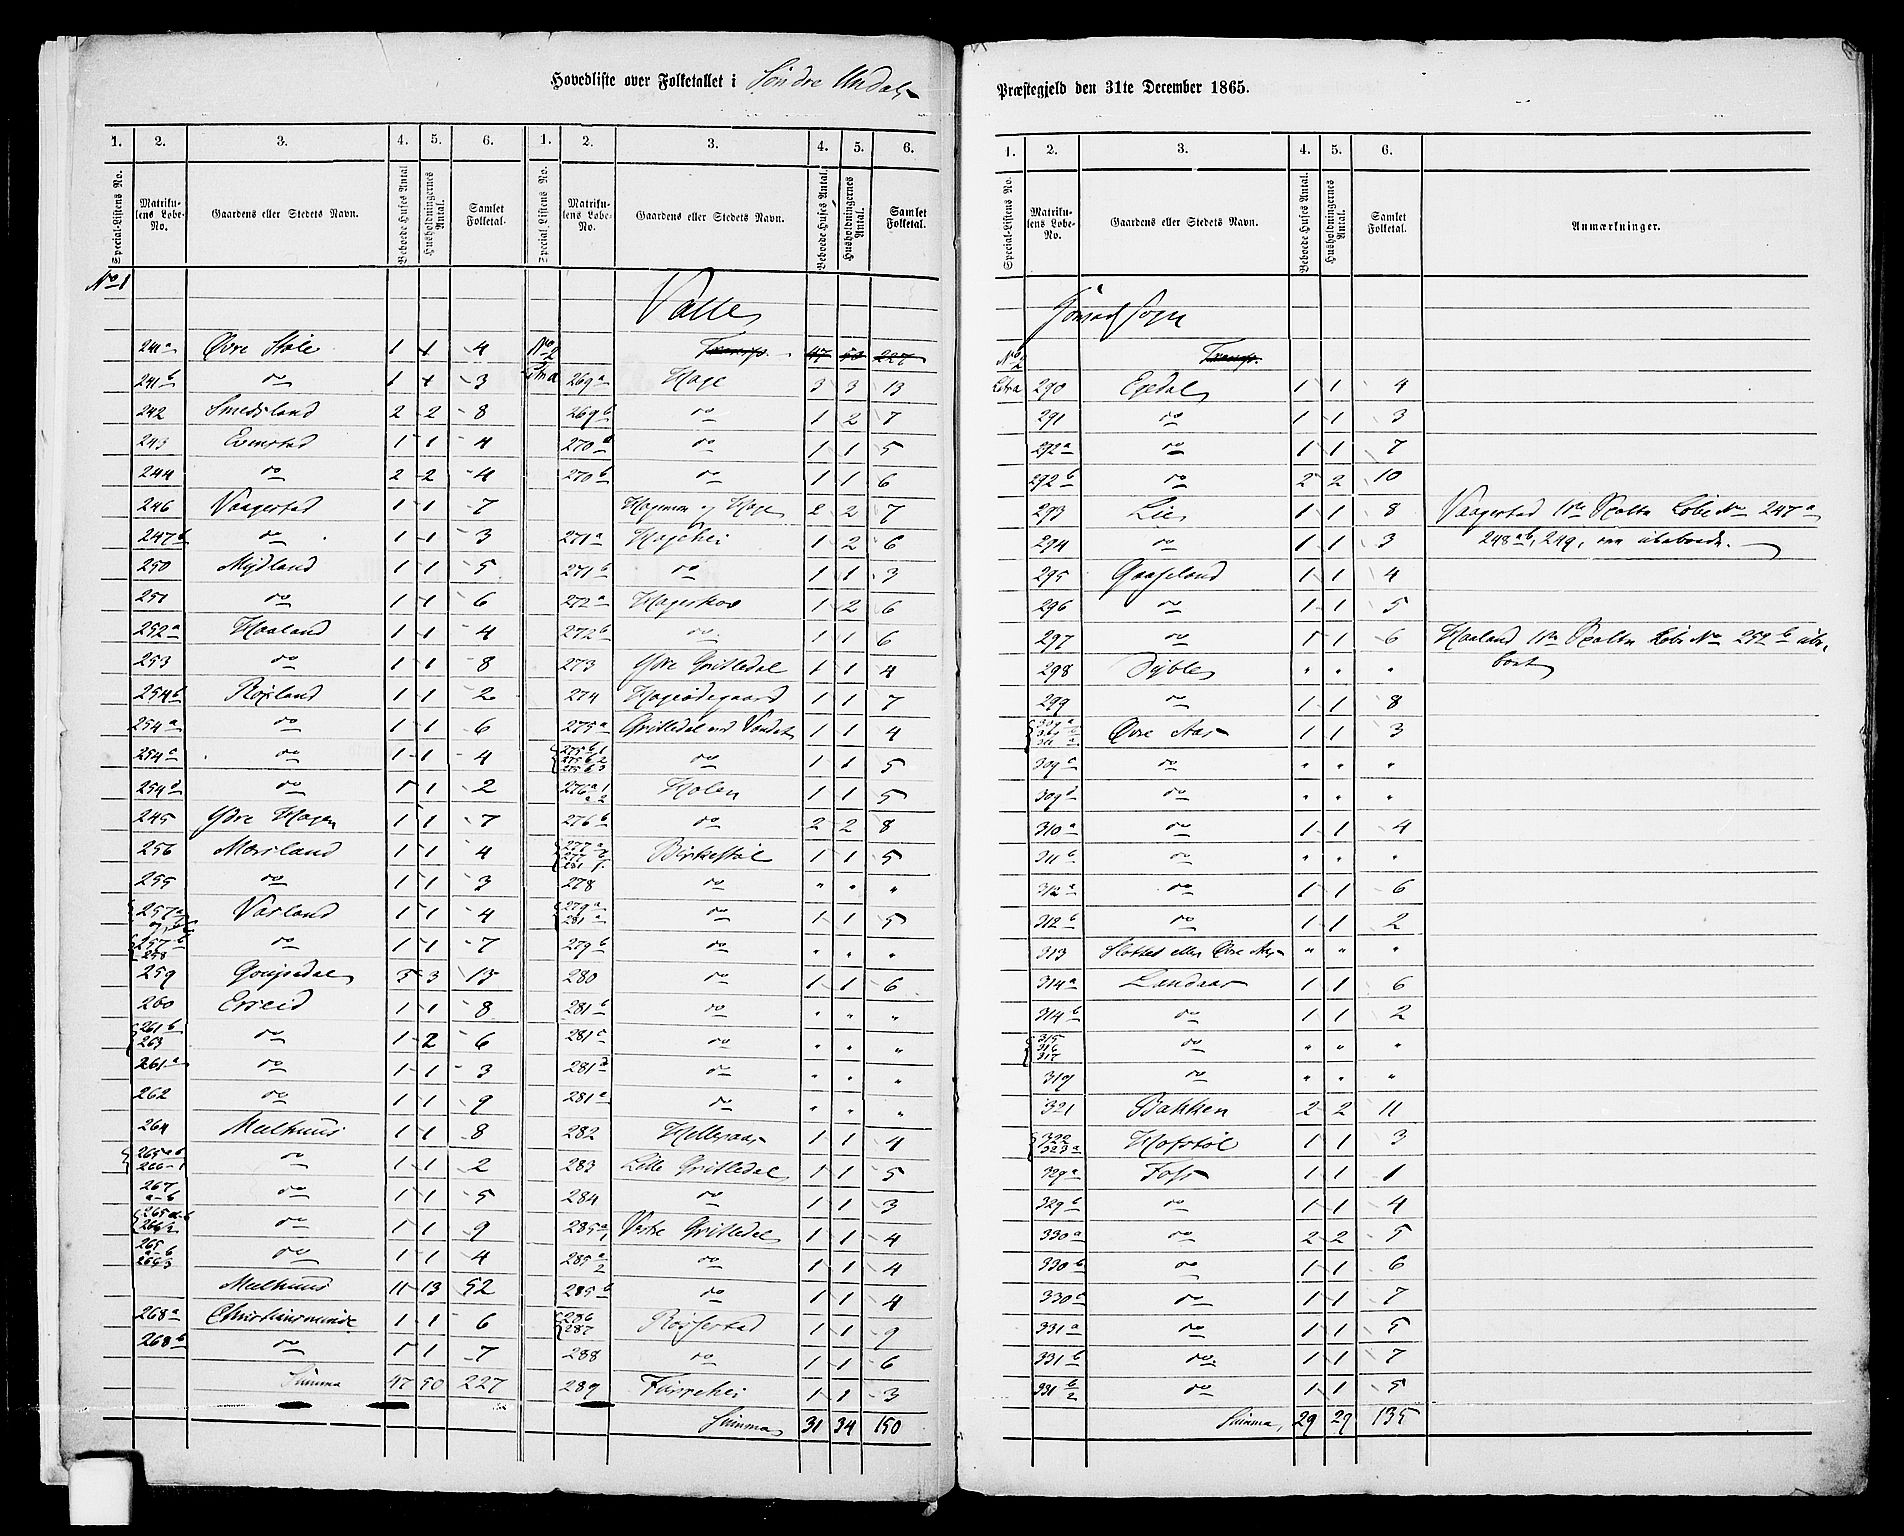 Hovedliste over Folketallet i Søndre Undals
Præstegjeld den 31te December 1865.
1. 2. 3. 4. 5. 6. 1. 2. 3. 4. 5. 6.
Special-Listens No. Matrikulens Løbe-No. Gaardens eller Stedets Navn. Beboede Huses Antal Husholdningernes Antal. Samlet Folketal. Special-Listens No. Matrikulens Løbe-No. Gaardens eller Stedets Navn. Beboede Huses Antal. Husholdningernes Antal. Samlet Folketal.
No 1
Valle
241a Øvre Støle 1 1 4
241b do 1 1 3
242 Smedsland 2 2 8
243 Evenstad 1 1 4
244 do 2 2 4
246 Vaagestad 1 1 7
247b do 1 1 3
250 Mydland 1 1 5
251 do 1 1 6
252a Haaland 1 1 4
253 do 1 1 8
254b Røisland 1 1 2
254a do 1 1 6
254c do 1 1 4
254d do 1 1 2
245 Ydre Hagen 1 1 7
256 Mersland 1 1 4
255 do 1 1 3
257a Varland 1 1 4
257b 258 do 1 1 7
259 Goupsdal 3 3 15
260 Erseid 1 1 8
261b 263 do 1 2 6
261a do 1 1 3
262 do 1 1 9
264 Mælhuus 1 1 8
do 1 1 2
267 a-b do 1 1 5
do 1 1 9
265 a-b do 1 1 4
Mælhuus 11 13 52
268a Christiansminde 1 1 6
268b do 1 1 7
Summa 47 50 227
No 2 Transp. 47 50 227
Litra a 269a Hage 3 3 13
269b do 1 2 7
270a do 1 1 5
270b do 1 1 6
Hagemon og Hage 2 2 7
271a Hagehei 1 2 6
271b do 1 1 3
272a Hageskov 1 2 6
272b do 1 1 6
273 Ydre Gritledal 1 1 4
274 Hageødegaard 1 1 7
275a Gritledal ved Vandet 1 1 4
275b1 275b2 275b3 do 1 1 5
276a1 a2 Holen 1 1 5
276b do 2 2 8
277a Birkestøl 1 1 5
278 do " " "
279a 281a do 1 1 5
279b do " " "
280 do 1 1 6
281b do " " "
281c do " " "
281d do " " "
281a do " " "
282 Helleraas 1 1 4
283 Lille Gritledal 1 1 5
284 do 1 1 3
285a1 Vestre Gritledal 1 1 4
285a2 do 1 1 4
285b do 1 1 4
286 287 Røisestad 1 1 9
288 do 1 1 6
289 Furrehei 1 1 3
Summa 31 34 150
1. 2. 3. 4. 5. 6.
Special-Listens No. Matrikulens Løbe-No. Gaardens eller Stedets Navn. Beboede Huses Antal. Husholdningernes Antal. Samlet Folketal. Anmærkninger.
Sogn
No 2 Transp.
Litra 290 Egedal 1 1 4
291 do 1 1 3
292a do 1 1 7
292b do 2 2 10
293 Lie 1 1 8 Vaagestad 1ste Spalte Løbe No 247a
294 do 1 1 3 248ab, 249, ere ubeboede.
295 Gaaseland 1 1 4
296 do 1 1 5
297 do 1 1 6 Haaland 1ste Spalte Løbe No 252b ube-
298 Dyble " " " boet
299 do 1 1 8
Øvre Aas 1 1 3
309c do " " "
309d do " " "
310a do 1 1 4
311b do " " "
312a do 1 1 6
312b do 1 1 2
313 Slottet eller Øvre Aas " " "
314a Landaas 1 1 6
314b do 1 1 2
315 316 317 do " " "
319 do " " "
321 Bakken 2 2 11
322 323a Hofstøl 1 1 3
329a Foss 1 1 1
329b do 1 1 4
330a do 2 2 5
330b do 1 1 6
330c do 1 1 7
331a do 1 1 5
331b do 1 1 7
331b/2 do 1 1 5
Summa, 29 29 135